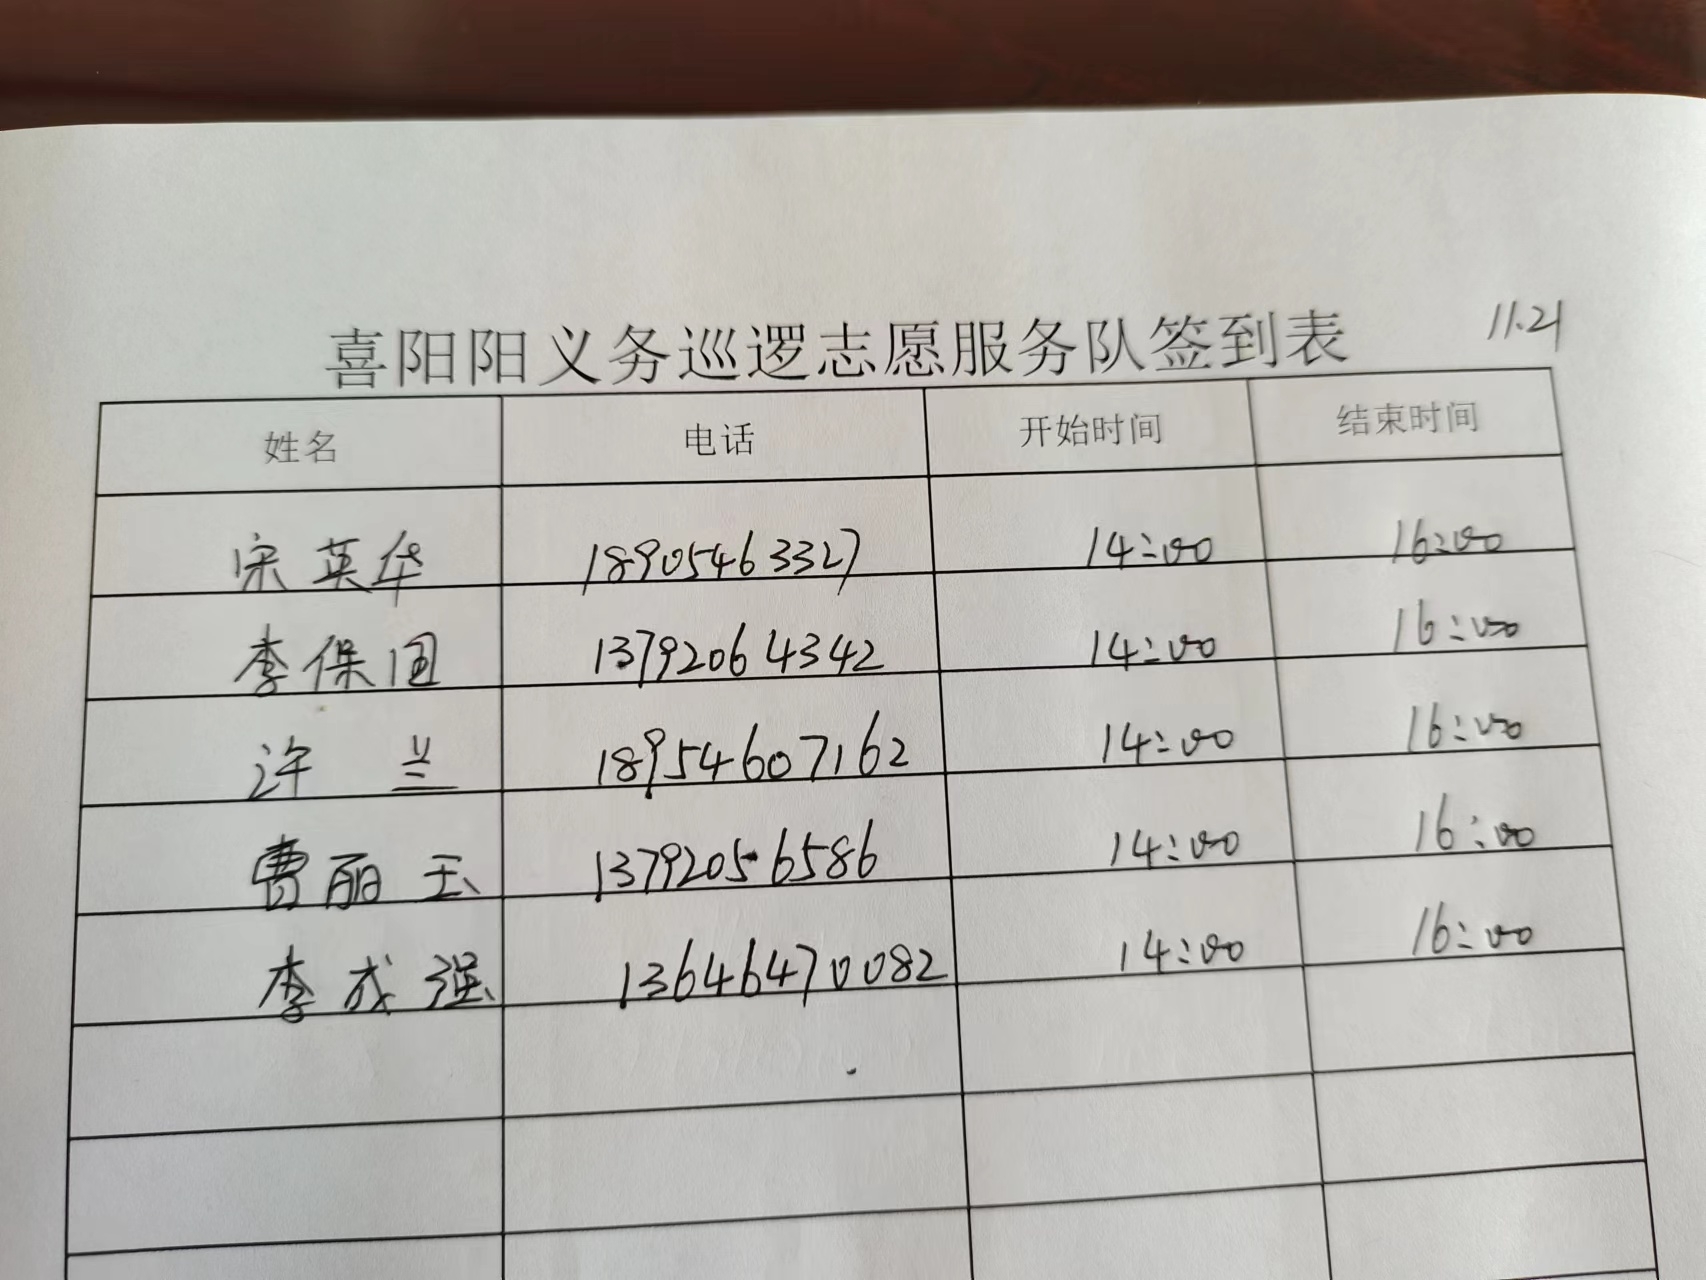 喜阳阳义务巡逻志愿服务队签到表 11.21
姓名 电话 开始时间 结束时间
宋英华 18905463327 14:00 16:00
李保国 13792064342 14:00 16:00
许兰 18954607162 14:00 16:00
曹丽玉 13792056586 14:00 16:00
李成强 13646470082 14:00 16:00